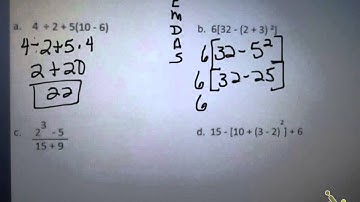 E
M
D
A
S
a. 4 ÷ 2 + 5(10 - 6)
4 ÷ 2 + 5 · 4
2 + 20
22
b. 6[32 - (2 + 3)²]
6[32 - 5²]
6[32 - 25]
6
c. 2³ - 5
15 + 9
d. 15 - [10 + (3 - 2)²] + 6